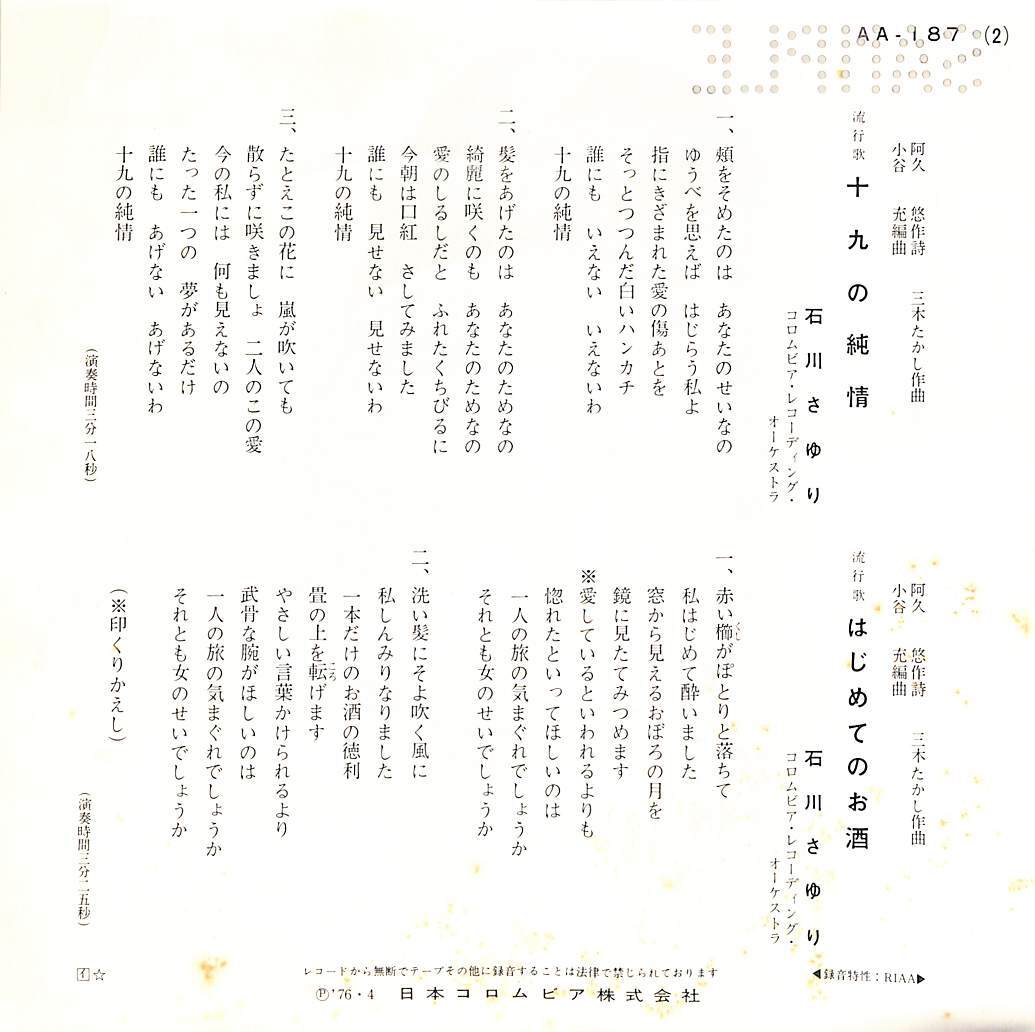 AA-187 (2)
SAMPLE
阿久 悠作詩 三木たかし作曲
小谷 充編曲
流行歌 十九の純情
石川さゆり
コロムビア・レコーディング・
オーケストラ
一、頬をそめたのは あなたのせいなの
ゆうべを思えば はじらう私よ
指にきざまれた愛の傷あとを
そっとつつんだ白いハンカチ
誰にも いえない いえないわ
十九の純情
二、髪をあげたのは あなたのためなの
綺麗に咲くのも あなたのためなの
愛のしるしだと ふれたくちびるに
今朝は口紅 さしてみました
誰にも 見せない 見せないわ
十九の純情
三、たとえこの花に 嵐が吹いても
散らずに咲きましょ 二人のこの愛
今の私には 何も見えないの
たった一つの 夢があるだけ
誰にも あげない あげないわ
十九の純情
(演奏時間三分一八秒)
阿久 悠作詩 三木たかし作曲
小谷 充編曲
流行歌 はじめてのお酒
石川さゆり
コロムビア・レコーディング・
オーケストラ
一、赤い櫛がぽとりと落ちて
くし
私はじめて酔いました
窓から見えるおぼろの月を
鏡に見たてみつめます
※愛しているといわれるよりも
惚れたといってほしいのは
一人の旅の気まぐれでしょうか
それとも女のせいでしょうか
二、洗い髪にそよ吹く風に
私しんみりなりました
一本だけのお酒の徳利
畳の上を転げます
ころ
やさしい言葉かけられるより
武骨な腕がほしいのは
一人の旅の気まぐれでしょうか
それとも女のせいでしょうか
(※印くりかえし)
(演奏時間三分二五秒)
◀録音特性：RIAA▶
レコードから無断でテープその他に録音することは法律で禁じられております
Ⓟ'76・4 日本コロムビア株式会社
イ☆